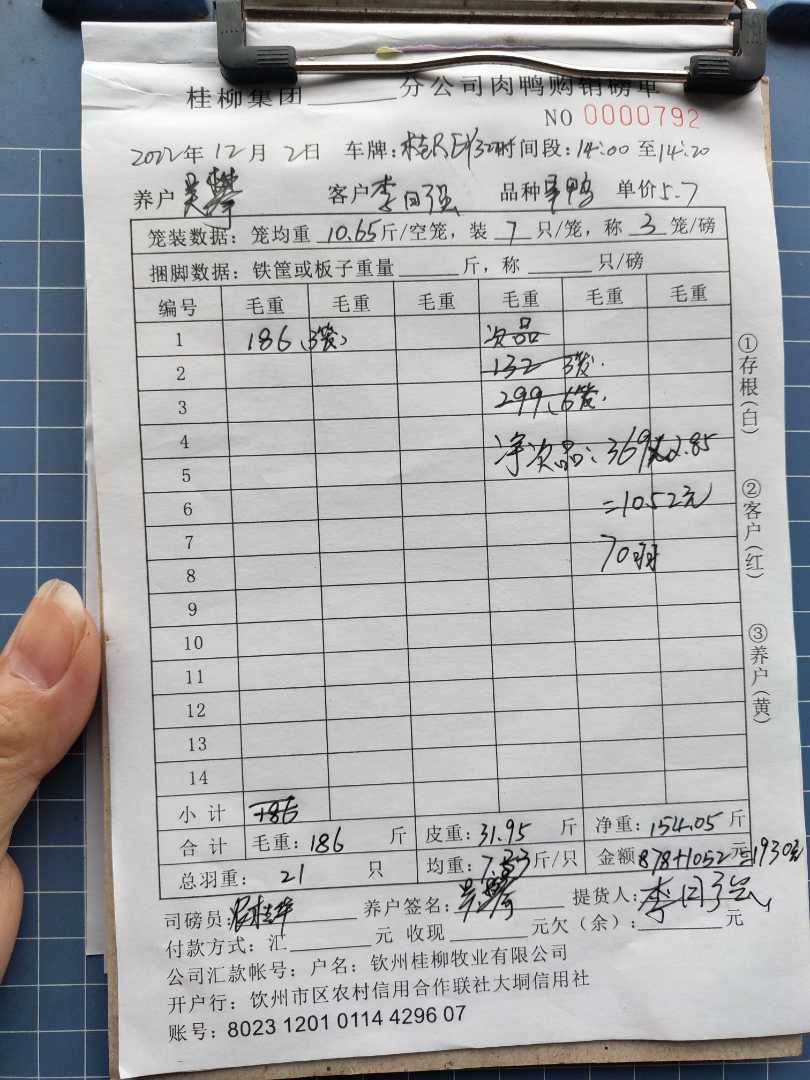 桂柳集团______分公司肉鸭购销磅单
NO 0000792
2022年12月2日 车牌: 时间段:14:00至14:20
养户 吴 客户 李日强 品种 鸭 单价5.7
笼装数据:笼均重 10.65斤/空笼,装 7 只/笼,称 3 笼/磅
捆脚数据:铁筐或板子重量______斤,称______只/磅
编号 毛重 毛重 毛重 毛重 毛重 毛重
1 186 次品
2 132
3 299
4 净次品:369×2.85
5
6 =1052元
7 70羽
8
9
10
11
12
13
14
小计 186
合计 毛重:186 斤 皮重:31.95 斤 净重:154.05斤
总羽重: 21 只 均重:7.33斤/只 金额878+1052元=1930元
司磅员: 养户签名:吴 提货人:李日强
付款方式:汇______元 收现______元欠(余):______元
公司汇款帐号:户名:钦州桂柳牧业有限公司
开户行:饮州市区农村信用合作联社大垌信用社
账号:8023 1201 0114 4296 07
①存根(白)
②客户(红)
③养户(黄)